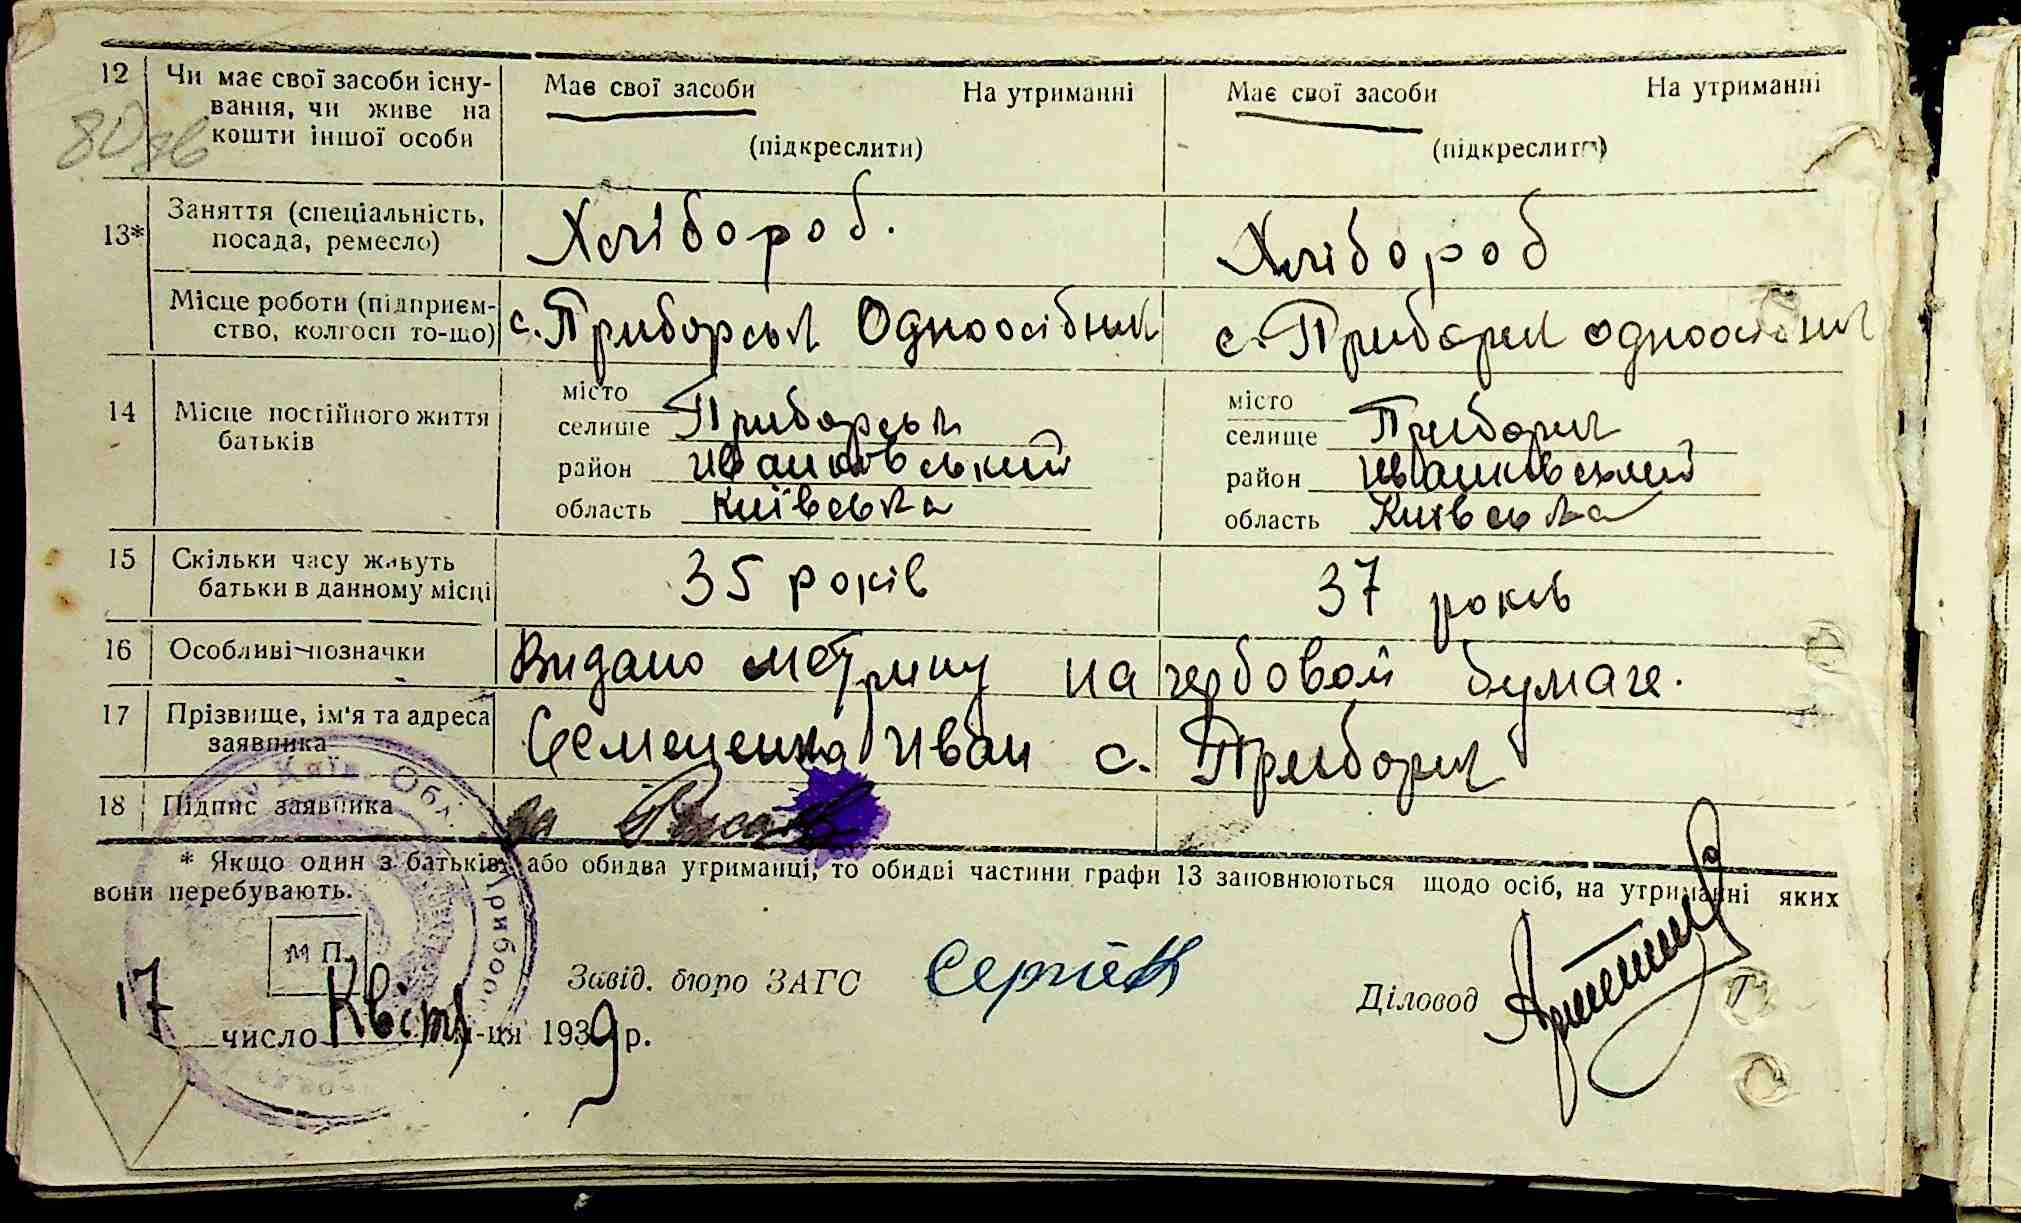 12 Чи має свої засоби існу- Має свої засоби На утриманні Має свої засоби На утриманні
вання, чи живе на
кошти іншої особи (підкреслити) (підкреслити)
80 зв
13* Заняття (спеціальність, Хлібороб. Хлібороб
посада, ремесло)
Місце роботи (підприєм- с. Приборськ Одноосібник с. Приборск одноосібник
ство, колгосп то-що)
14 Місце постійного життя місто місто
батьків селище Приборськ селище Приборск
район Иванковський район Иванковський
область Київська область Київська
15 Скільки часу живуть 35 років 37 років
батьки в данному місці
16 Особливі позначки Видано метрику на гербовой бумаге.
17 Прізвище, ім'я та адреса Семененко Иван с. Приборск
заявника
18 Підпис заявника за
* Якщо один з батьків, або обидва утриманці, то обидві частини графи 13 заповнюються щодо осіб, на утриманні яких
вони перебувають.
М П.
Завід. бюро ЗАГС Діловод
17 число Квітня м-ця 1939 р.
Київ. Обл.